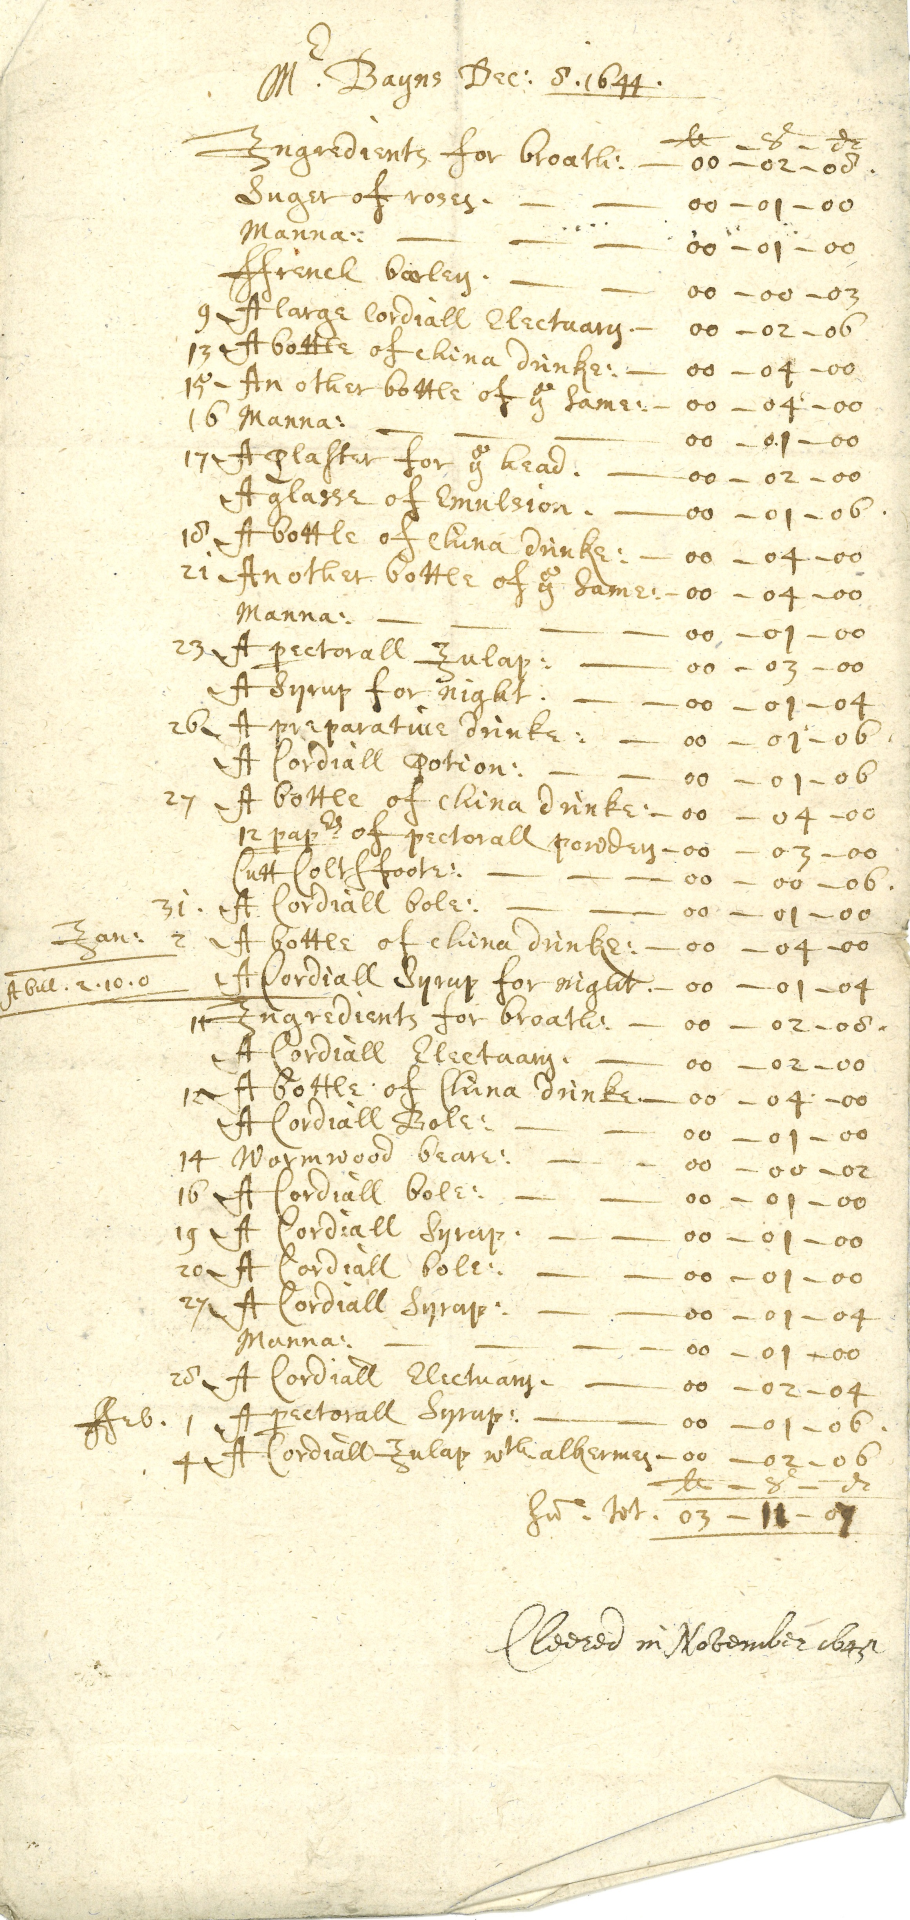 Mr. Bayns Dec: 8. 1644.
li — s — d
Ingredients for broath: — 00 — 02 — 08.
Suger of roses. — — 00 — 01 — 00
Manna: — — — 00 — 01 — 00
ffrench barley. — — 00 — 00 — 03
9 A large Cordiall Electuary. — 00 — 02 — 06
13 A bottle of china drinke: — 00 — 04 — 00
15 An other bottle of ye same: — 00 — 04 — 00
16 Manna: — — — 00 — 01 — 00
17 A Plaster for ye head. — 00 — 02 — 00
A glasse of Emulsion. — 00 — 01 — 06.
18 A bottle of China drinke: — 00 — 04 — 00
21 An other bottle of ye same: — 00 — 04 — 00
Manna: — — — — 00 — 01 — 00
23 A pectorall Julap: — 00 — 03 — 00
A Syrup for night. — — 00 — 01 — 04
26 A preparative drinke: — 00 — 01 — 06.
A Cordiall Potion: — — 00 — 01 — 06
27 A bottle of china drinke: — 00 — 04 — 00
12 papers of pectorall powder — 00 — 03 — 00
Cutt Coltsfoote: — — — 00 — 00 — 06.
31. A Cordiall bole: — — 00 — 01 — 00
Jan: 2 A bottle of china drinke: — 00 — 04 — 00
A bill. 2. 10. 0
A Cordiall Syrup for night. — 00 — 01 — 04
11 Ingredients for broath: — 00 — 02 — 08.
A Cordiall Electuary. — 00 — 02 — 00
12 A bottle of China drinke — 00 — 04 — 00
A Cordiall Bole: — — 00 — 01 — 00
14 Wormwood beare: — - 00 — 00 — 02
16 A Cordiall bole: — — 00 — 01 — 00
19 A Cordiall Syrup. — — 00 — 01 — 00
20 A Cordiall bole: — — 00 — 01 — 00
27 A Cordiall Syrup: — — 00 — 01 — 04
Manna: — — — 00 — 01 — 00
28 A Cordiall Electuary. — 00 — 02 — 04
ffeb. 1 A pectorall Syrup: — 00 — 01 — 06.
4 A Cordiall Julap wth alkermes — 00 — 02 — 06
li — s — d
Sum. tot. 03 — 11 — 07
Cleered in November 1645